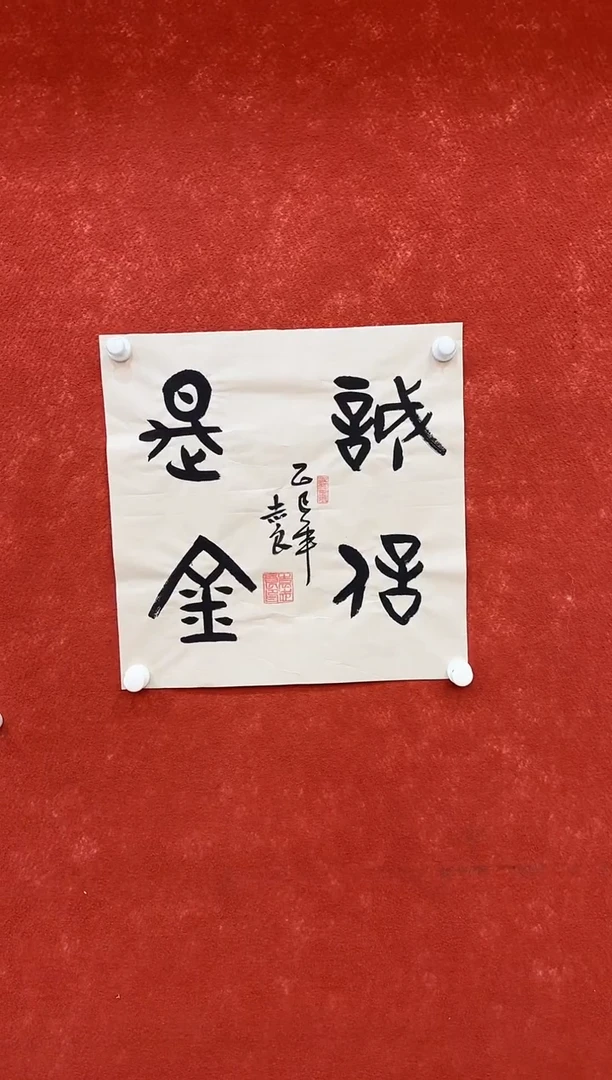 誠信
是金
乙巳年
志良